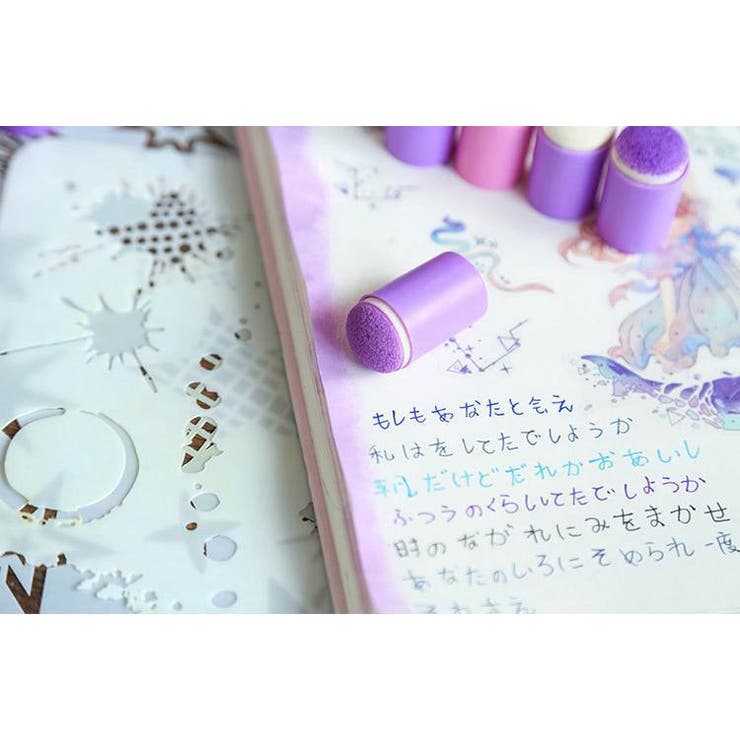 もしもあなたと会え
私はをしてたでしようか
平凡だけどだれかおあいし
ふつうのくらしてたでしようか
時のながれにみをまかせ
あなたのしろにそめられ一度
それさえ